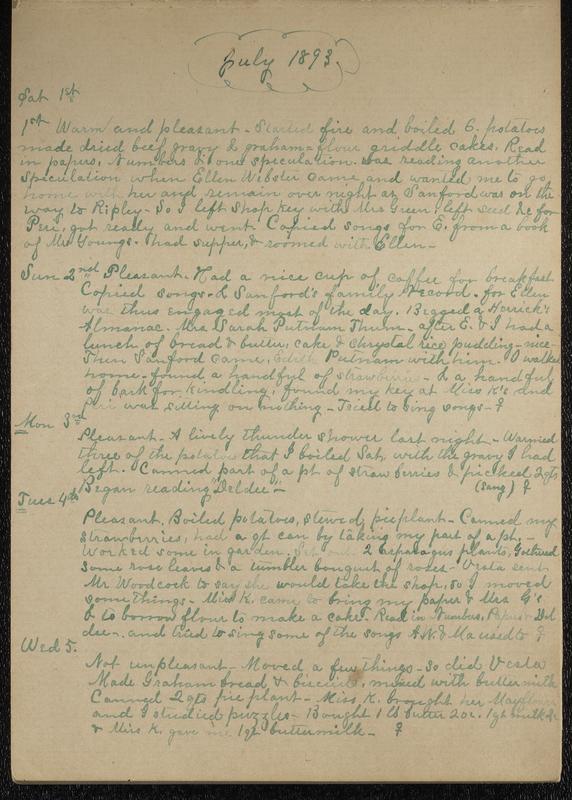 July 1893.
Sat 1st
1st Warm and pleasant - Started fire and boiled 6. potatoes
made dried beef gravy & graham-flour griddle cakes. Read
in papers, Numbers & one speculation. was reading another
speculation when Ellen Webster came and wanted me to go
home with her and remain over night as Sanford was on the
way to Ripley - So I left shop key with Mrs Green, left seed &c for
Peri, got ready and went. Copied songs for E. from a book
of Mr Youngs. had supper, & roomed with Ellen -
Sun 2nd Pleasant. Had a nice cup of coffee for breakfast
Copied songs & Sanford's family record. for Ellen
was thus engaged most of the day. Begged a Herrick's
Almanac. Mrs Sarah Putnam - after E. & I had a
lunch of bread & butter, cake & Chrystal rice pudding - nice -
Then Sanford came, Edith Putnam with him. I walked
home - found a handful of strawberries - & a handful
of bark for kindling, found my key at Miss K's and
Peri was sitting on nothing - Tried to sing songs - ♀
Mon 3rd
Pleasant - A lively thunder shower last night - Warmed
three of the potatoes that I boiled Sat. with the gravy I had
left. Canned part of a pt of straw berries & picked 2 qts
Began reading "Deldee" - (sang) ♀
Tues 4th
Pleasant. Boiled potatoes, stewed pieplant - Canned my
strawberries, had a qt can by taking my part of a pt. -
Worked some in garden. Set out 2 asparagus plants, Gathered
some rose leaves & a tumbler bouquet of roses - Vesta sent
Mr Woodcock to say she would take the shop, so I moved
some things - Miss K. came to bring my paper & Mrs G's
& to borrow flour to make a cake. Read in Numbers, Papers & Del
dee -. and tried to sing some of the songs A.N. & Ma used to ♀
Wed 5.
Not unpleasant - Moved a few things - so did Vesta
Made Graham bread & biscuit, mixed with buttermilk
Canned 2 qts pieplant - Miss. K. brought her Mayflower
and I studied puzzles - Bought 1 lb butter 20c. 1 qt milk
& Miss K. gave me 1 qt buttermilk - ♀